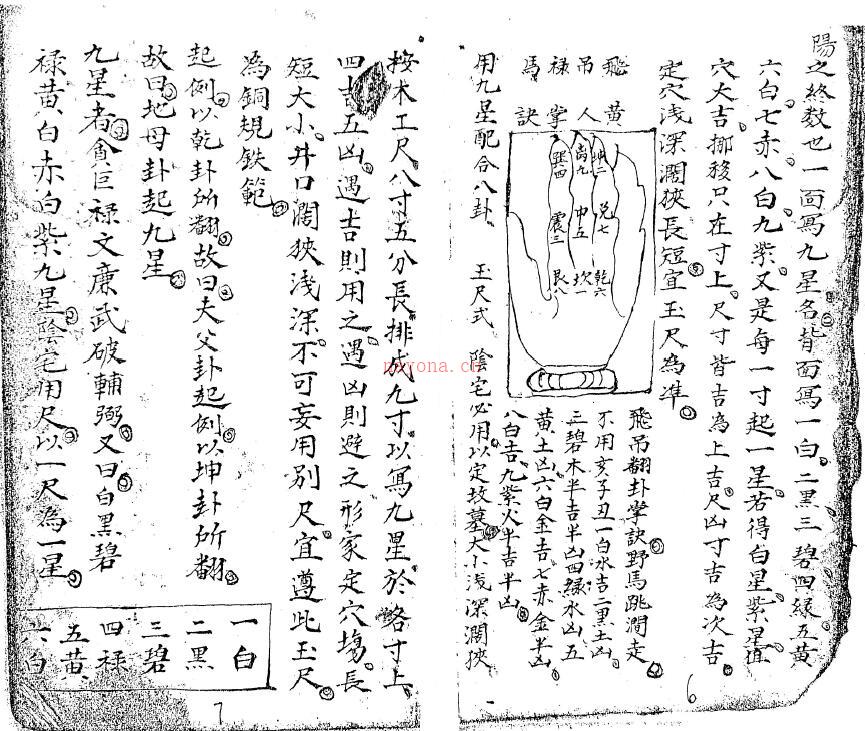 陽之终数也一面寫九星名皆面寫一白二黑三碧四緑五黄
六白七赤八白九紫又是每一寸起一星若得白星紫星值
穴大吉挪移只在寸上尺寸皆吉為上吉尺凶寸吉為次吉
定穴浅深濶狹長短宜玉尺為準
飛吊禄馬
黄人掌訣
坤二 兑七 乾六
离九 中五 坎一
巽四 震三 艮八
飛吊翻卦掌訣野馬跳澗走
不用亥子丑一白水吉二黑土凶
三碧木半吉半凶四緑水凶五
黄土凶六白金吉七赤金半凶
八白吉九紫火半吉半凶
用九星配合八卦 玉尺式 陰宅必用以定坟墓大小浅深濶狹
6
按木工尺八寸五分長排成九寸以寫九星於各寸上
四吉五凶遇吉則用之遇凶則避之形家定穴塲長
短大小井口濶狹浅深不可妄用别尺宜遵此玉尺
為銅規鉄範
起例以乾卦所翻故曰天父卦起例以坤卦所翻
故曰地母卦起九星
九星者貪巨禄文廉武破輔弼又曰白黑碧
禄黄白赤白紫九星陰宅用尺以一尺為一星
一白
二黑
三碧
四禄
五黄
六白
7
nayona.cn